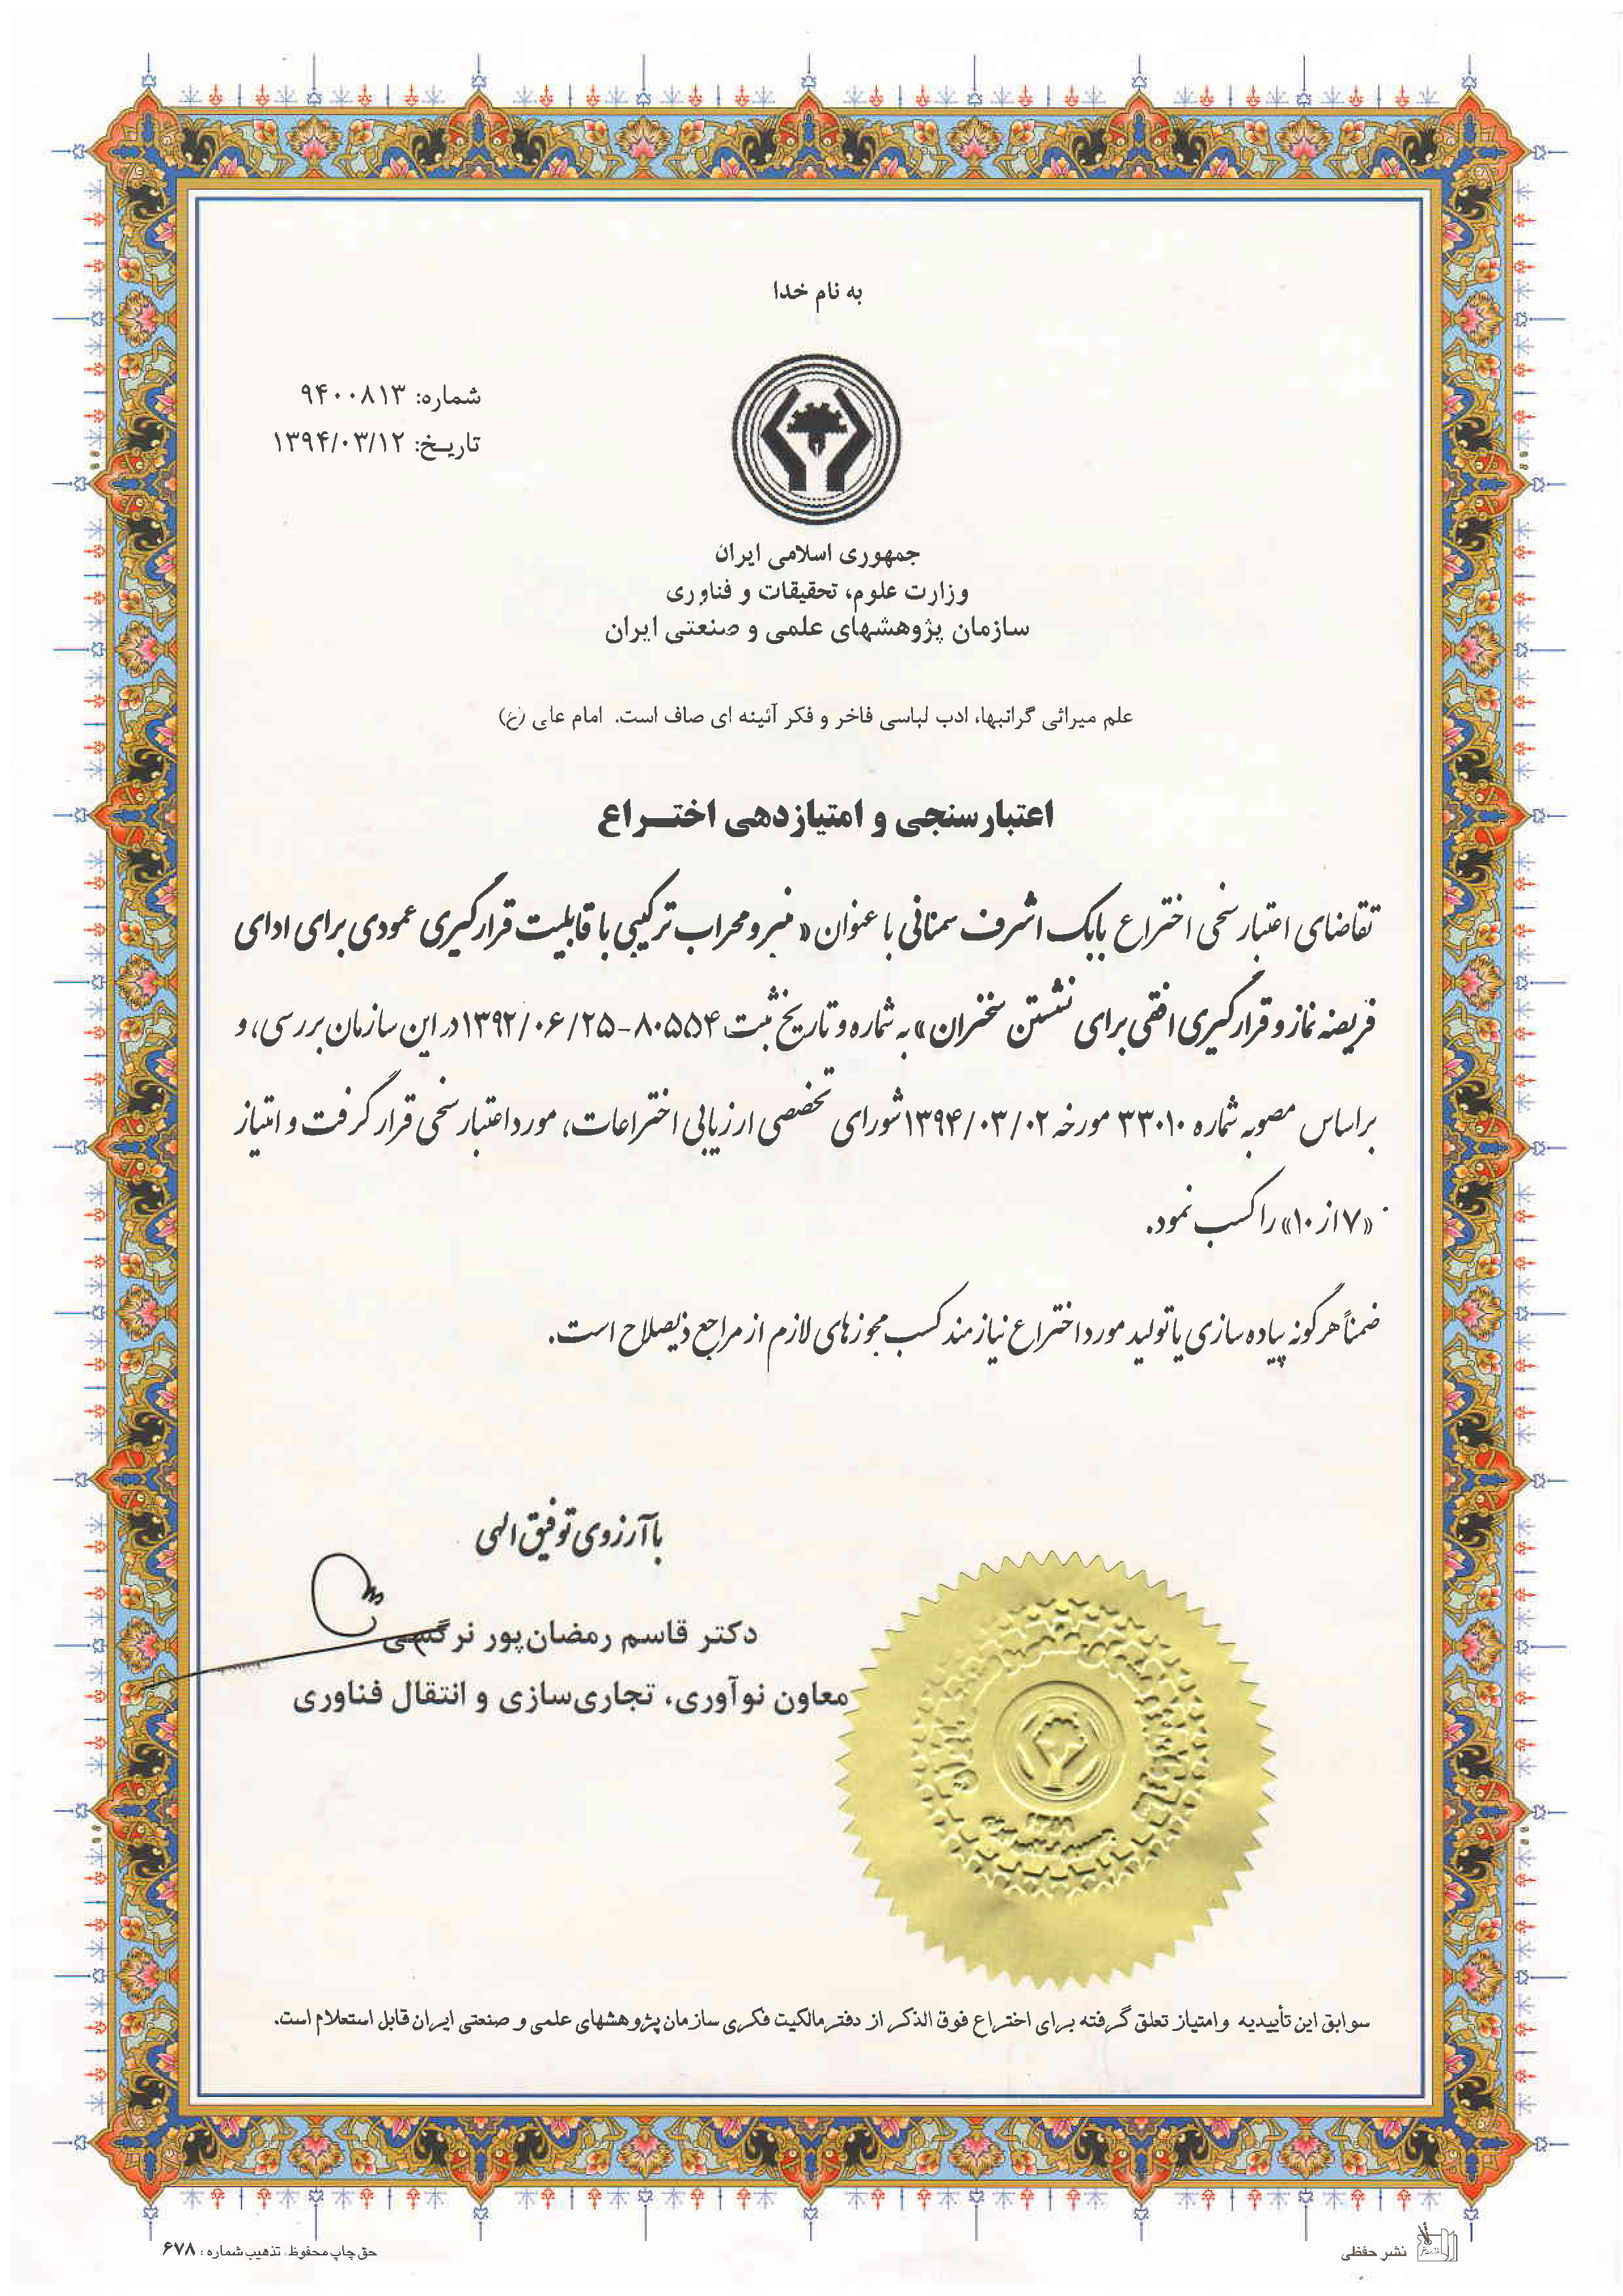 به نام خدا
شماره: ۹۴۰۰۸۱۳
تاریخ: ۱۳۹۴/۰۳/۱۲
جمهوری اسلامی ایران
وزارت علوم، تحقیقات و فناوری
سازمان پژوهشهای علمی و صنعتی ایران
علم میراثی گرانبها، ادب لباسی فاخر و فکر آئینه ای صاف است. امام علی (ع)
اعتبارسنجی و امتیازدهی اختــراع
تقاضای اعتبار سنجی اختراع بابک اشرف سمنانی با عنوان « منبر و محراب ترکیبی با قابلیت قرارگیری عمودی برای ادای
فریضه نماز و قرارگیری افقی برای نشستن سخنران» به شماره و تاریخ ثبت ۸۰۵۵۴-۱۳۹۲/۰۶/۲۵ در این سازمان بررسی، و
براساس مصوبه شماره ۳۳۰۱۰ مورخه ۱۳۹۴/۰۳/۰۲ شورای تخصصی ارزیابی اختراعات، مورد اعتبار سنجی قرار گرفت و امتیاز
«۷ از ۱۰» را کسب نمود.
ضمناً هرگونه پیاده سازی یا تولید مورد اختراع نیازمند کسب مجوزهای لازم از مراجع ذیصلاح است.
با آرزوی توفیق الهی
دکتر قاسم رمضان‌پور نرگسی
معاون نوآوری، تجاری‌سازی و انتقال فناوری
سوابق این تأییدیه و امتیاز تعلق گرفته برای اختراع فوق الذکر از دفتر مالکیت فکری سازمان پژوهشهای علمی و صنعتی ایران قابل استعلام است.
نشر حفظی
حق چاپ محفوظ. تذهیب شماره: ۶۷۸